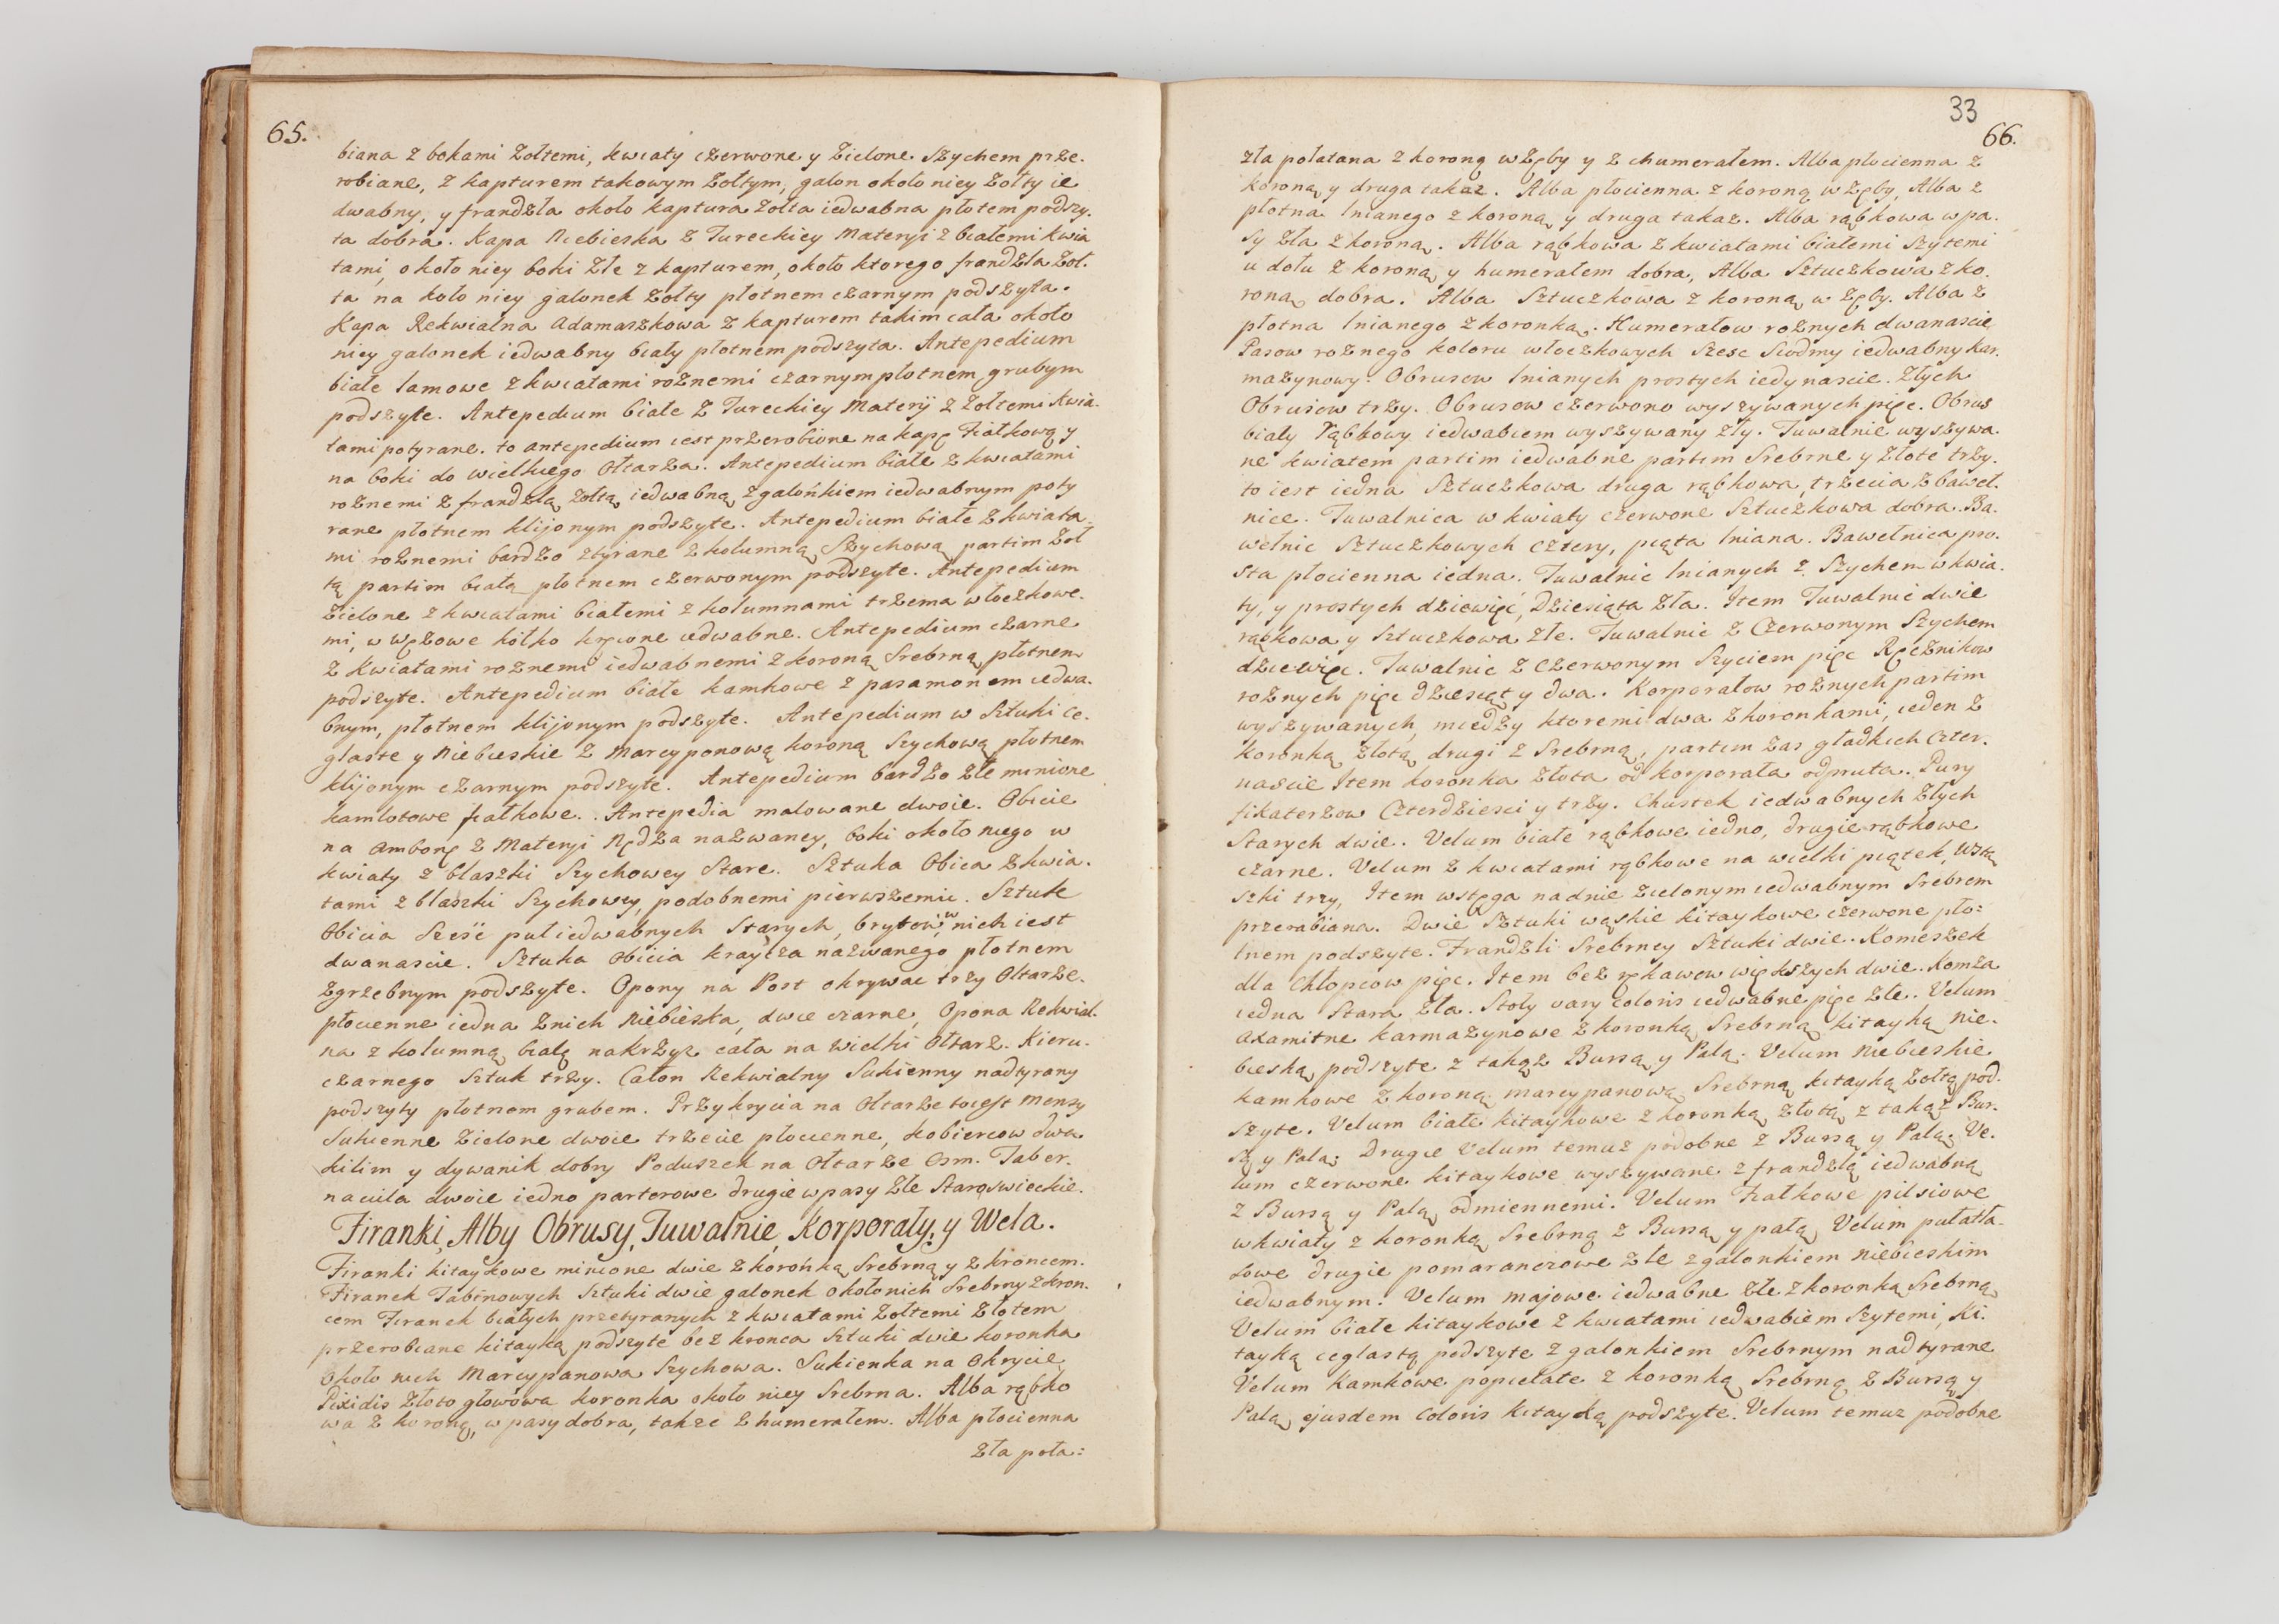 65.
biana z bokami żołtemi, kwiaty czerwone y zielone Szychem prze.
robiane, z kapturem takowym żołtym, galon około niey żołty ie
dwabny, y frandzla około kaptura żołta iedwabna płotem podszy.
ta dobra. Kapa Niebieska z Tureckiey Materyi z białemi kwia
tami, około niey boki złe z kapturem, około ktorego frandzla żoł.
ta na koło niey galonek żołty płotnem czarnym podszyta.
Kapa Rekwialna Adamaszkowa z kapturem takim cała około
niey galonek iedwabny biały płotnem podszyta. Antepedium
białe lamowe z kwiatami rożnemi czarnym płotnem grubym
podszyte. Antepedium białe z Tureckiey Materij z żołtemi kwia.
tami potyrane. to antepedium iest przerobione na kapę Fiałkową y
na boki do wielkiego Ołtarza. Antepedium białe z kwiatami
rożnemi z frandzlą żołtą iedwabną z galońkiem iedwabnym poty
rane płotnem klijonym podszyte. Antepedium białe z kwiata.
mi rożnemi bardzo ztyrane z kolumną Szychową partim żoł
tą partim białą płotnem czerwonym podszyte. Antepedium
zielone z kwiatami białemi z kolumnami trzema włoczkowe.
mi, w wężowe kołko kręcone iedwabne. Antepedium czarne
z kwiatami rożnemi iedwabnemi z koroną Srebrną płotnem
podszyte. Antepedium białe kamkowe z pasamonem iedwa.
bnym, płotnem klijonym podszyte. Antepedium w Sztuki ce.
glaste y Niebieskie z Marcyponową koroną Szychową płotnem
klijonym czarnym podszyte. Antepedium bardzo złe minione
kamlotowe fiałkowe. Antepedia malowane dwoie. Obicie
na Ambonę z Materyi Nędza nazwaney, boki około niego w
kwiaty z blaszki Szychowey Stare. Sztuka Obicia z kwia.
tami z blaszki Szychowey, podobnemi pierwszemu. Sztuk
Obicia Sześć puł iedwabnych Starych, brytow w nich iest
dwanascie. Sztuka Obicia kraycza nazwanego płotnem
zgrzebnym podszyte. Opony na Post okrywac trzy Ołtarze.
płocienne iedna z nich Niebieska, dwie czarne, Opona Rekwial.
na z kolumną białą nakrzyż cała na wielki Ołtarz. Kieru.
czarnego Sztuk trzy. Całon Rekwialny Sukienny nadtyrany
podszyty płotnem grubem. Przykrycia na Ołtarze toiest Mensy
Sukienne zielone dwoie trzecie płocienne, kobiercow dwa
kilim y dywanik dobry Poduszek na Ołtarze Osm. Taber.
nacula dwoie iedno parterowe drugie w pasy złe Staroswieckie.
Firanki, Alby Obrusy, Tuwalnie, Korporały, y Wela.
Firanki kitaykowe minione dwie z korońką Srebrną y z kroncem.
Firanek Tabinowych Sztuki dwie galonek około nich Srebrny z kron.
cem Firanek białych przetyranych z kwiatami żołtemi złotem
przerobiane kitayką podszyte bez kronca Sztuki dwie koronka
około nich Marcypanowa Szychowa. Sukienka na Okrycie
Pixidis złoto głowowa koronka około niey Srebrna. Alba rąbko
wa z koroną, w pasy dobra, także z humerałem. Alba płocienna
zła poła:
33
66.
zła połatana z koroną w zęby y z chumerałem. Alba płocienna z
koroną y druga takaz. Alba płocienna z koroną w zęby, Alba z
płotna lnianego z koroną y druga takaz. Alba rąbkowa w pa.
sy zła z koroną. Alba rąbkowa z kwiatami białemi Szytemi
u dołu z koroną y humerałem dobra, Alba Sztuczkowa z ko.
roną dobra. Alba Sztuczkowa z koroną w zęby. Alba z
płotna lnianego z koronką. Humerałow rożnych dwanascie
Pasow rożnego koloru włoczkowych Szesc Siodmy iedwabny kar.
mazynowy. Obrusow lnianych prostych iedynascie. Złych
Obrusow trzy. Obrusow czerwono wyszywanych pięc. Obrus
biały rąbkowy iedwabiem wyszywany zły. Tuwalnie wyszywa.
ne kwiatem partim iedwabne partim Srebrne y złote trzy.
to iest iedna Sztuczkowa druga rąbkowa, trzecia z baweł.
nice. Tuwalnica w kwiaty czerwone Sztuczkowa dobra. Ba.
wełnic Sztuczkowych cztery, piąta lniana. Bawełnica pro.
sta płocienna iedna. Tuwalnie lnianych z Szychem w kwia.
ty, y prostych dziewięć, Dziesiąta zła. Item Tuwalnie dwie
rąbkowa y Sztuczkowa złe. Tuwalnie z Czerwonym Szychem
dziewięc. Tuwalnie z czerwonym Szyciem pięc Ręcznikow
rożnych pięc dziesiąt y dwa. Korporałow rożnych partim
wyszywanych, miedzy ktoremi dwa z koronkami, ieden z
koronką złotą drugi z Srebrną, partim zas gładkich czter.
nascie Item koronka złota od korporała odpruta. Pury
fikaterzow Czterdziesci y trzy. Chustek iedwabnych złych
Starych dwie. Velum białe rąbkowe iedno, drugie rąbkowe
czarne. Velum z kwiatami rąbkowe na wielki piątek, wstą
szki trzy, Item wstęga na dnie zielonym iedwabnym Srebrem
przerabiana. Dwie Sztuki wąskie kitaykowe czerwone pło:
tnem podszyte. Frandzli Srebrney Sztuki dwie. Komeszek
dla Chłopcow pięc. Item bez rękawow większych dwie. Komża
iedna Stara zła. Stoły vary coloris iedwabne pięc złe. Velum
axamitne karmazynowe z koronką Srebrną kitayką nie.
bieską podszyte z takąż Bursą y Palą. Velum Niebieskie
kamkowe z koroną marcypanową Srebrną kitayką żołtą pod.
szyte. Velum białe kitaykowe z koronką złotą z takąż Bur.
są y Palą; Drugie Velum temuz podobne z Bursą y Palą. Ve.
lum czerwone kitaykowe wyszywane z frandzlą iedwabną
z Bursą y Palą odmiennemi. Velum Fiałkowe pilsiowe
w kwiaty z koronką Srebrną z Bursą y pałą, Velum pułatła.
sowe drugie pomaranczowe złe z galonkiem niebieskim
iedwabnym. Velum majowe iedwabne złe z koronką Srebrną
Velum białe kitaykowe z kwiatami iedwabiem Szytemi, Ki.
tayką ceglastą podszyte z galonkiem Srebrnym nadtyrane
Velum Kamkowe popielate z koronką Srebrną z Bursą y
Palą ejusdem Coloris kitayką podszyte. Velum temuz podobne